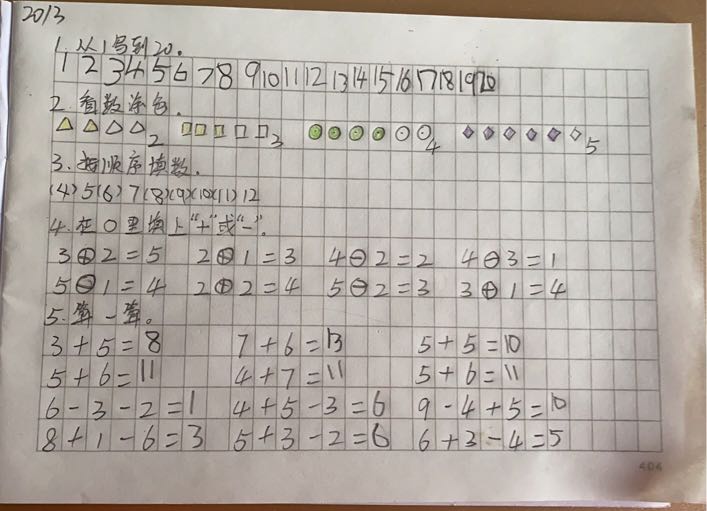 2013
1. 从1写到20。
1 2 3 4 5 6 7 8 9 10 11 12 13 14 15 16 17 18 19 20
2. 看数涂色。
2 3 4 5
3. 按顺序填数.
(4) 5 (6) 7 (8)(9)(10)(11) 12
4. 在○里填上"+"或"-".
3⊕2=5 2⊕1=3 4⊖2=2 4⊖3=1
5⊖1=4 2⊕2=4 5⊖2=3 3⊕1=4
5. 算一算。
3+5=8 7+6=13 5+5=10
5+6=11 4+7=11 5+6=11
6-3-2=1 4+5-3=6 9-4+5=10
8+1-6=3 5+3-2=6 6+3-4=5
404